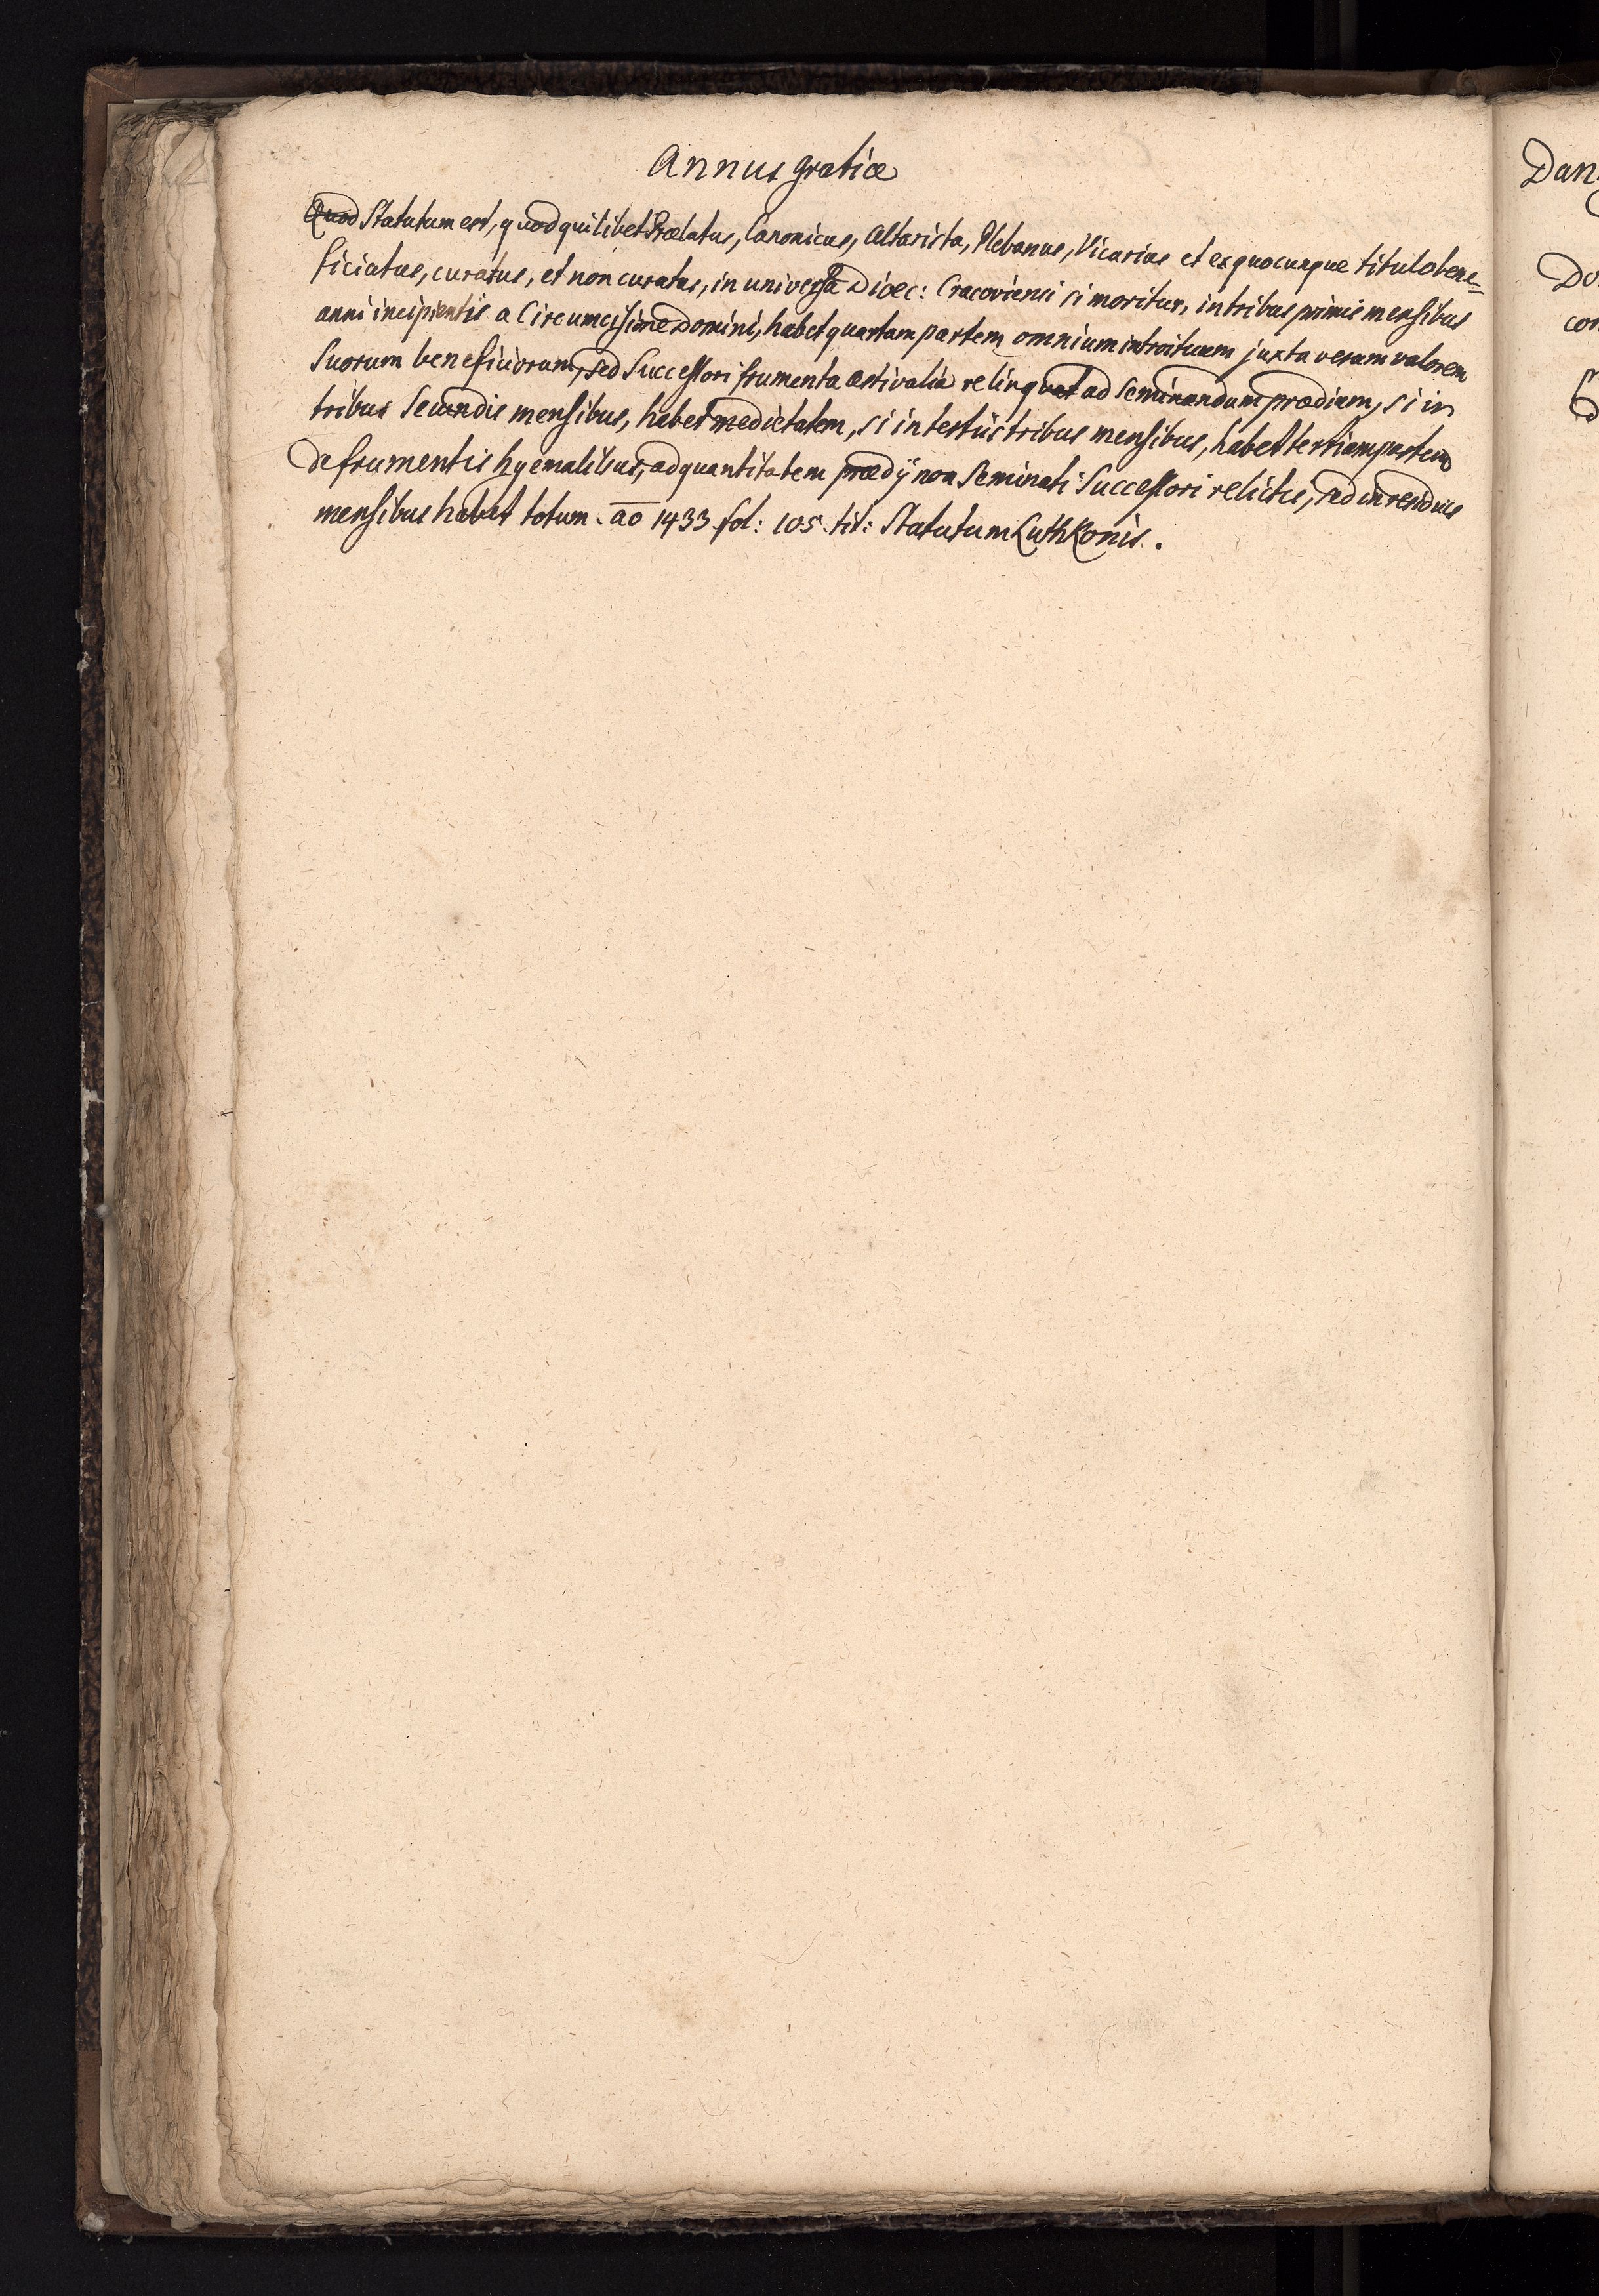 Annus gratiæ
Quod Statutum est, quod quilibet Prælatus, Canonicus, Altarista, Plebanus, Vicarius et ex quocunque titulo bene=
ficiatus, curatus, et non curatus, in universa Dioec: Cracoviensi si moritur, in tribus primis mensibus
anni incipientis a Circumcisione Domini, habet quartam partem omnium introituum juxta verum valorem
Suorum beneficiorum, sed Successori frumenta æstivalia relinquat ad Seminandum prædium, si in
tribus Secundis mensibus, habet medietatem, si in tertiis tribus mensibus, habet tertiam partem
de frumentis hyemalibus, ad quantitatem prædij non Seminati Successori relictis, sed in residuis
mensibus habet totum. ao 1433 fol: 105. tit: Statutum Luthkonis.
Dan
Do
con